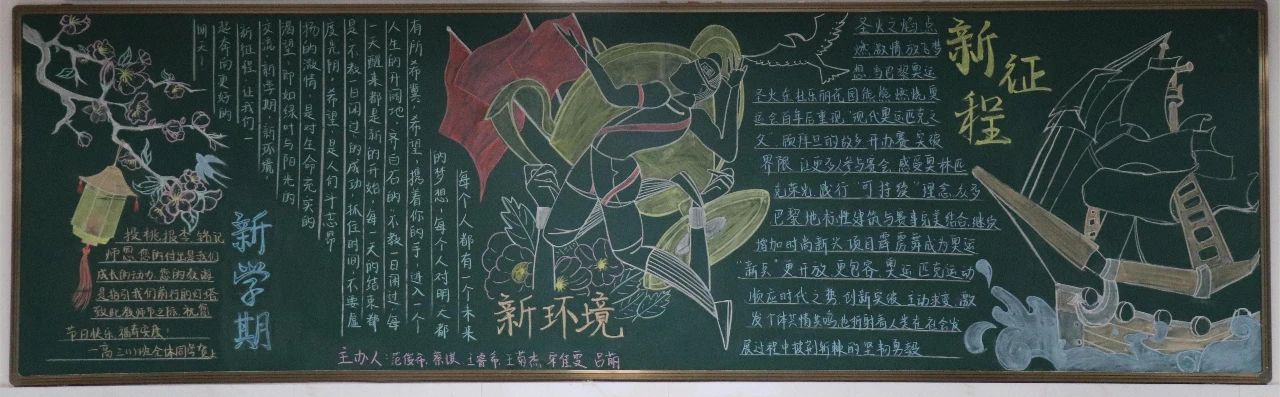 新征程
圣火之焰点
燃激情放飞梦
想.当巴黎奥运
圣火在杜乐丽花园熊熊燃烧,奥
运会百年后重现"现代奥运匹克之
父"顾拜旦的故乡.开办赛.突破
界限.让更多人参与赛会.感受奥林匹
克荣光.践行"可持续"理念.众多
巴黎地标性建筑与赛事完美结合.继续
增加时尚新大项目霹雳舞成为奥运
"新贵"更开放.更包容.奥运匹克运动
顺应时代之势.创新突破.主动求变.激
发个体共情共鸣,也折射着人类在社会发
展过程中披荆斩棘的坚韧勇毅
新环境
每个人都有一个未来
的梦想,每个人对明天都
有所希冀,希望,携着你的手,进入一个
人生的开阔地。齐白石的"不教一日闲过"每
一天醒来都是新的开始,每一天的结束都
是"不教一日闲过"的成功.抓住时间,不要虚
度光阴。希望,是人们斗志昂
扬的激情,是对生命充实的
渴望,即如绿叶与阳光的
交流,新学期,新环境
新征程,让我们一
起奔向更好的
明天!
新学期
投桃报李 铭记
师恩.您的付出是我们
成长的动力.您的教诲
是指引我们前行的灯塔
致此教师节之际.祝您
节日快乐.福寿安康!
一高三(1)班全体同学贺上
主办人:范俊希 蔡淇 王睿希 王菊杰 宋佳雯 吕萌